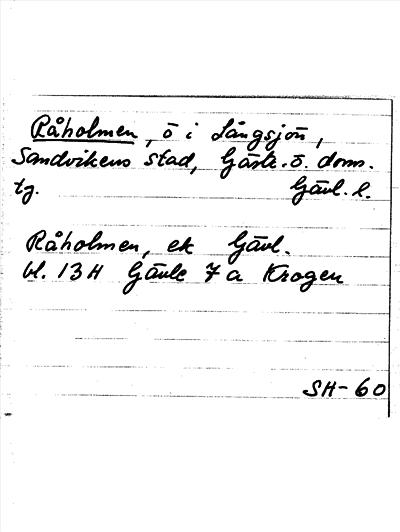 Råholmen, ö i Långsjön,
Sandvikens stad, Gästr. ö. doms.
tg. Gävl. l.
Råholmen, ek Gävl.
bl. 13H Gävle 7a Krogen
SH-60